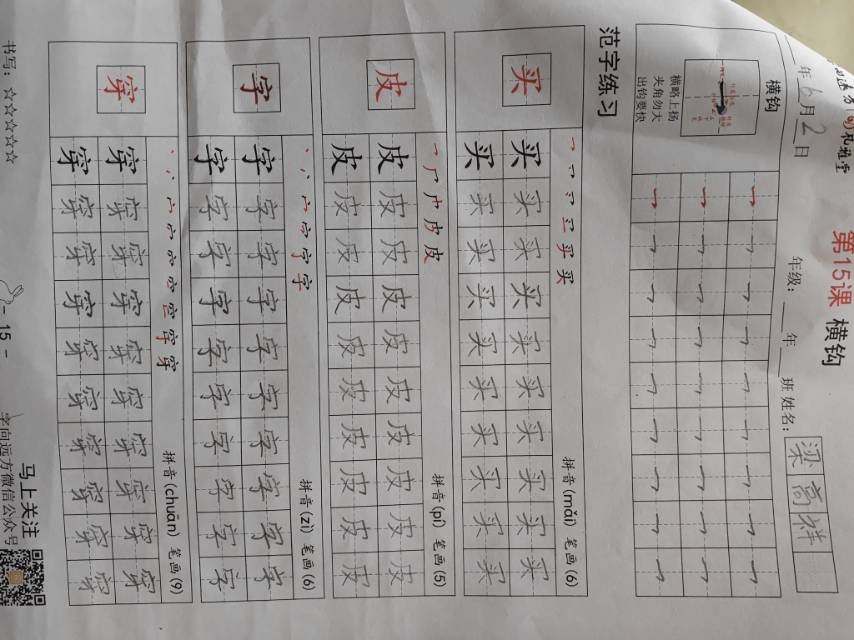 第15课 横钩
年6月2日 年级:___年___班 姓名: 梁高祥
横钩
横略上扬
夹角勿大
出钩要快
范字练习
买 拼音(mǎi) 笔画(6)
买买买买买买买买买买
买买买买买买买买买买
皮 拼音(pí) 笔画(5)
皮皮皮皮皮皮皮皮皮皮
皮皮皮皮皮皮皮皮皮皮
字 拼音(zì) 笔画(6)
字字字字字字字字字字
字字字字字字字字字字
穿 拼音(chuān) 笔画(9)
穿穿穿穿穿穿穿穿穿穿
穿穿穿穿穿穿穿穿穿穿
书写: ☆☆☆☆☆ - 15 - 马上关注
字向远方微信公众号